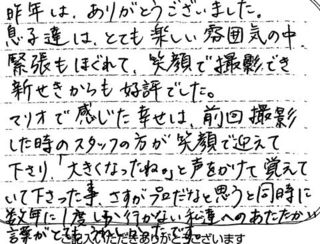 昨年は、ありがとうございました。
息子達は、とても楽しい雰囲気の中
緊張もほぐれて、笑顔で撮影でき
新せきからも好評でした。
マリオで感じた幸せは、前回撮影
した時のスタッフの方が笑顔で迎えて
下さり、「大きくなったね。」と声をかけて覚えて
いて下さった事、さすがプロだなと思うと同時に
数年に1度しか行かない私達へのあたたかい
言葉がとてもうれしかったです。
ご記入いただきありがとうございます